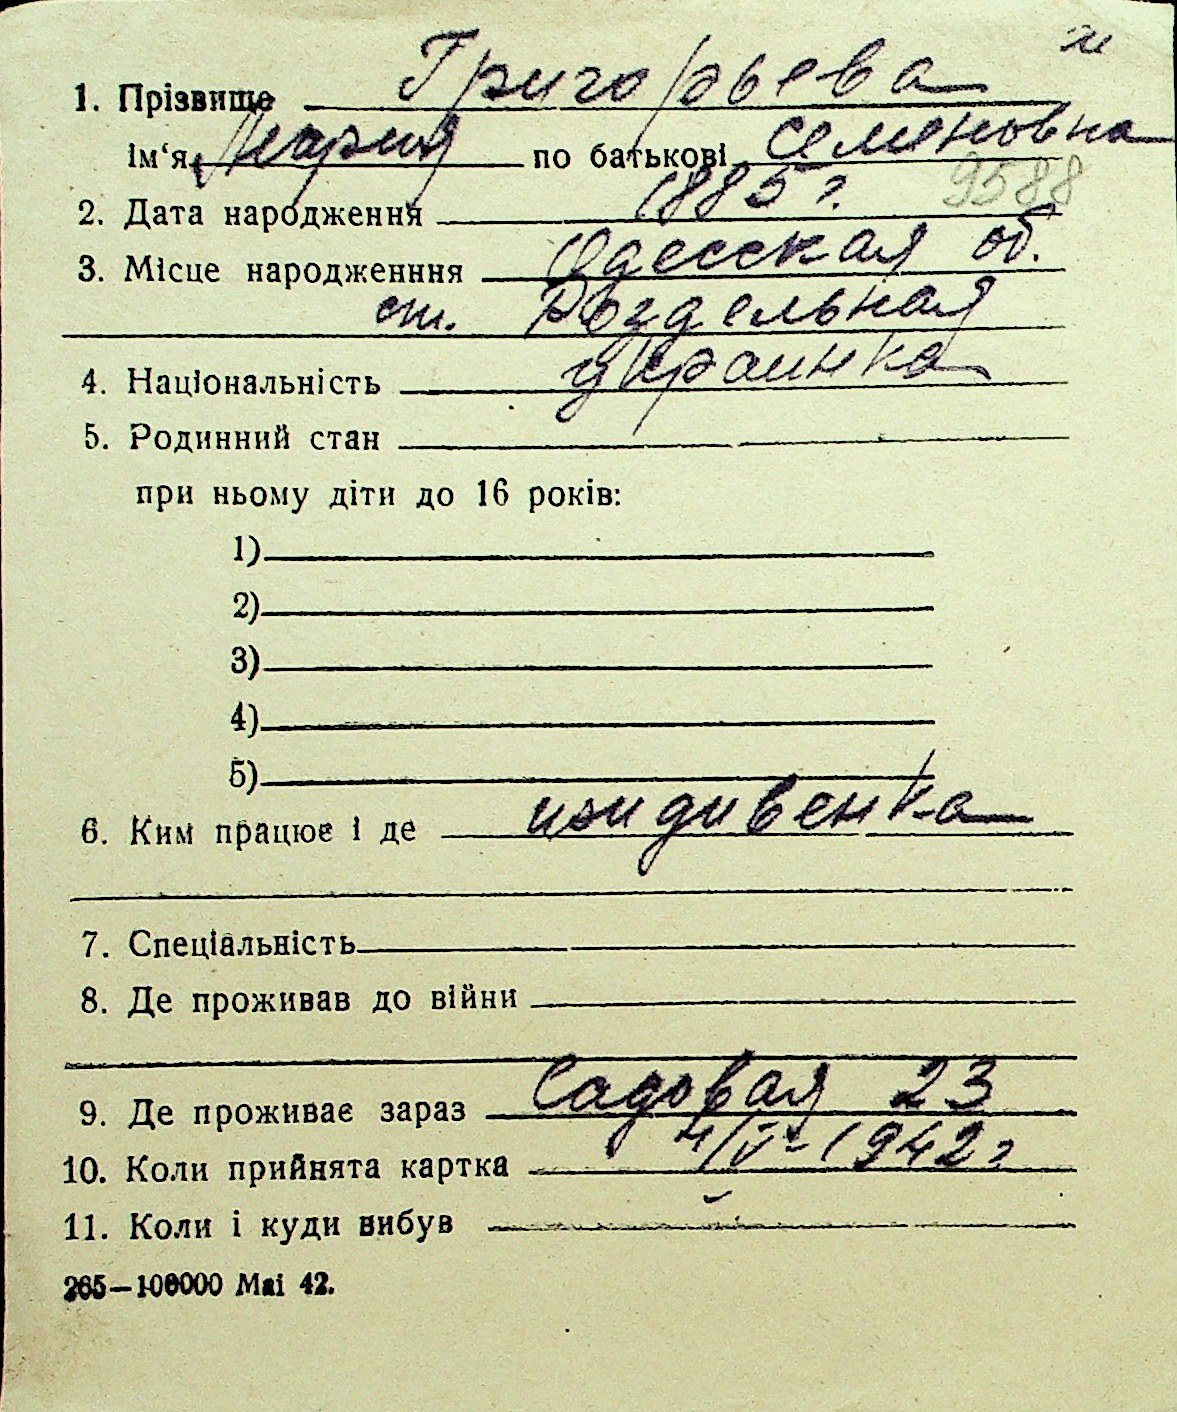 1. Прізвище Григорьева
Ім‘я Мария по батькові Семеновна
2. Дата народження 1885 г. 9588
3. Місце народженння Одесская об.
ст. Раздельная
4. Національність украинка
5. Родинний стан
при ньому діти до 16 років:
1)
2)
3)
4)
5)
6. Ким працює і де иждивенка
7. Спеціальність
8. Де проживав до війни
9. Де проживає зараз Садовая 23
10. Коли прийнята картка 4/V-1942 г
11. Коли і куди вибув
265—100000 Маі 42.